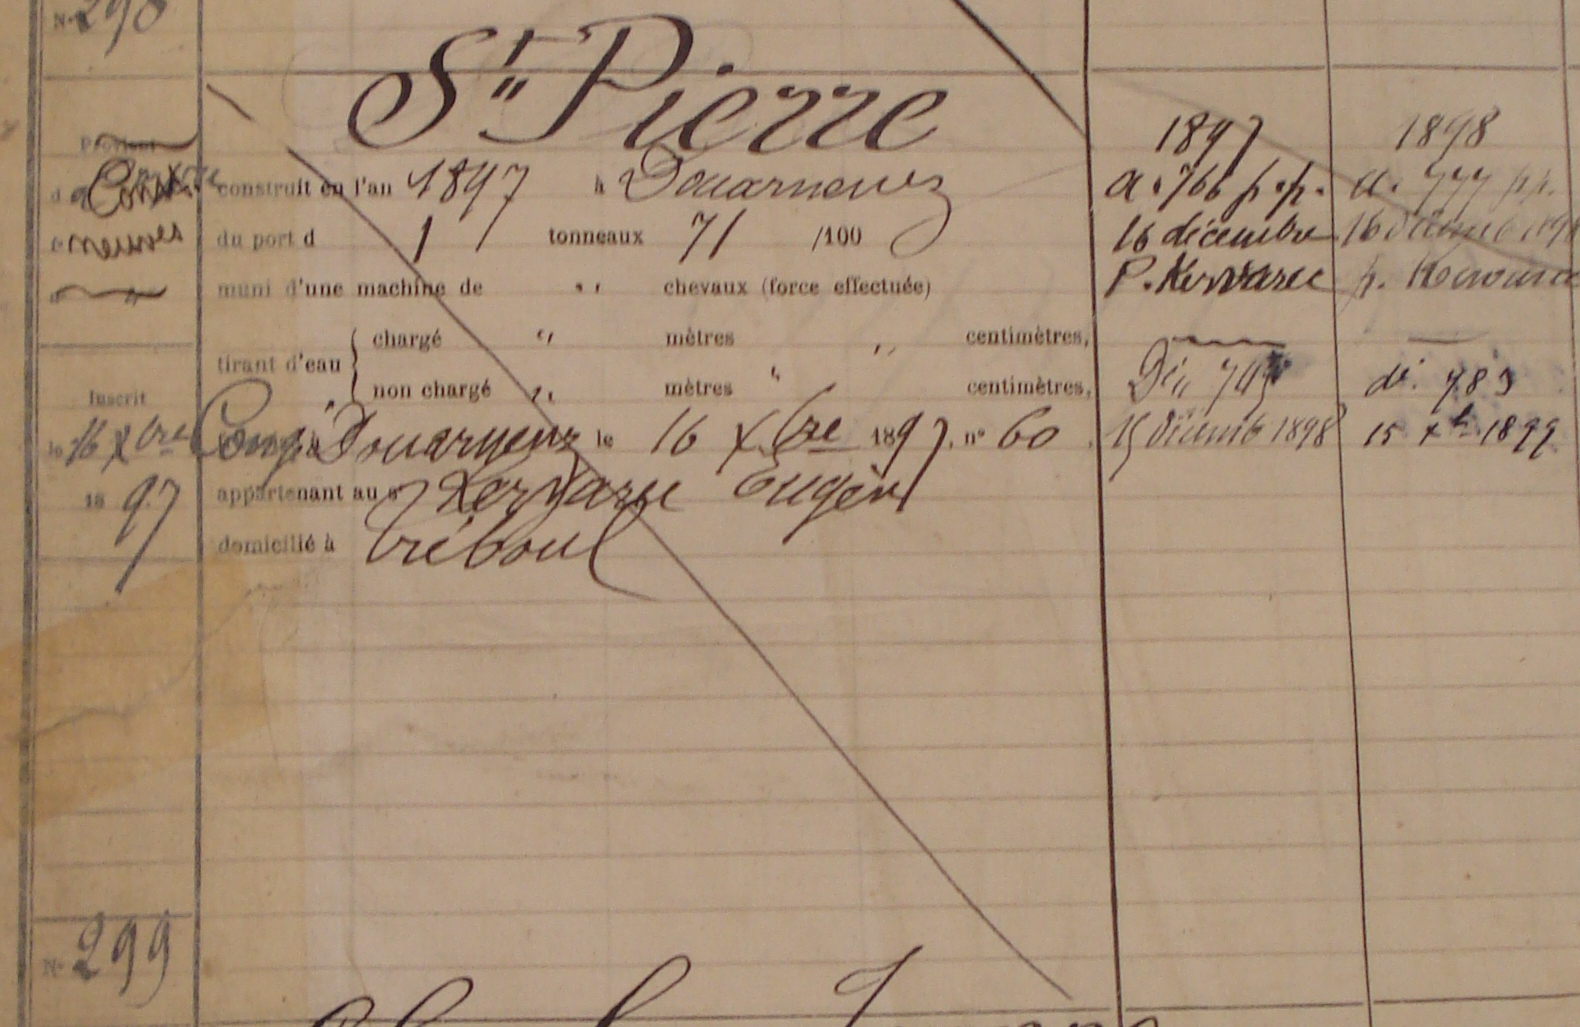 N° 298
St Pierre
Provient
d
neuves
construit en l'an 1897 à Douarnenez
du port d 1 tonneaux 71 /100
muni d'une machine de " chevaux (force effectuée)
tirant d'eau
chargé " mètres " centimètres,
non chargé " mètres " centimètres,
Inscrit
le 16 Xbre
1897
Congé à Douarnenez le 16 Xbre 1897. n° 60
appartenant au s Kervarec Eugène
domicilié à Tréboul
1897
a. 766 p.p.
16 décembre
P. Kervarec
Dé"
15 décemb 1898
1898
a. 777 p.p.
16 décemb 1898
p. Kervarec
dé. 783
15 Xbre 1899
N° 299